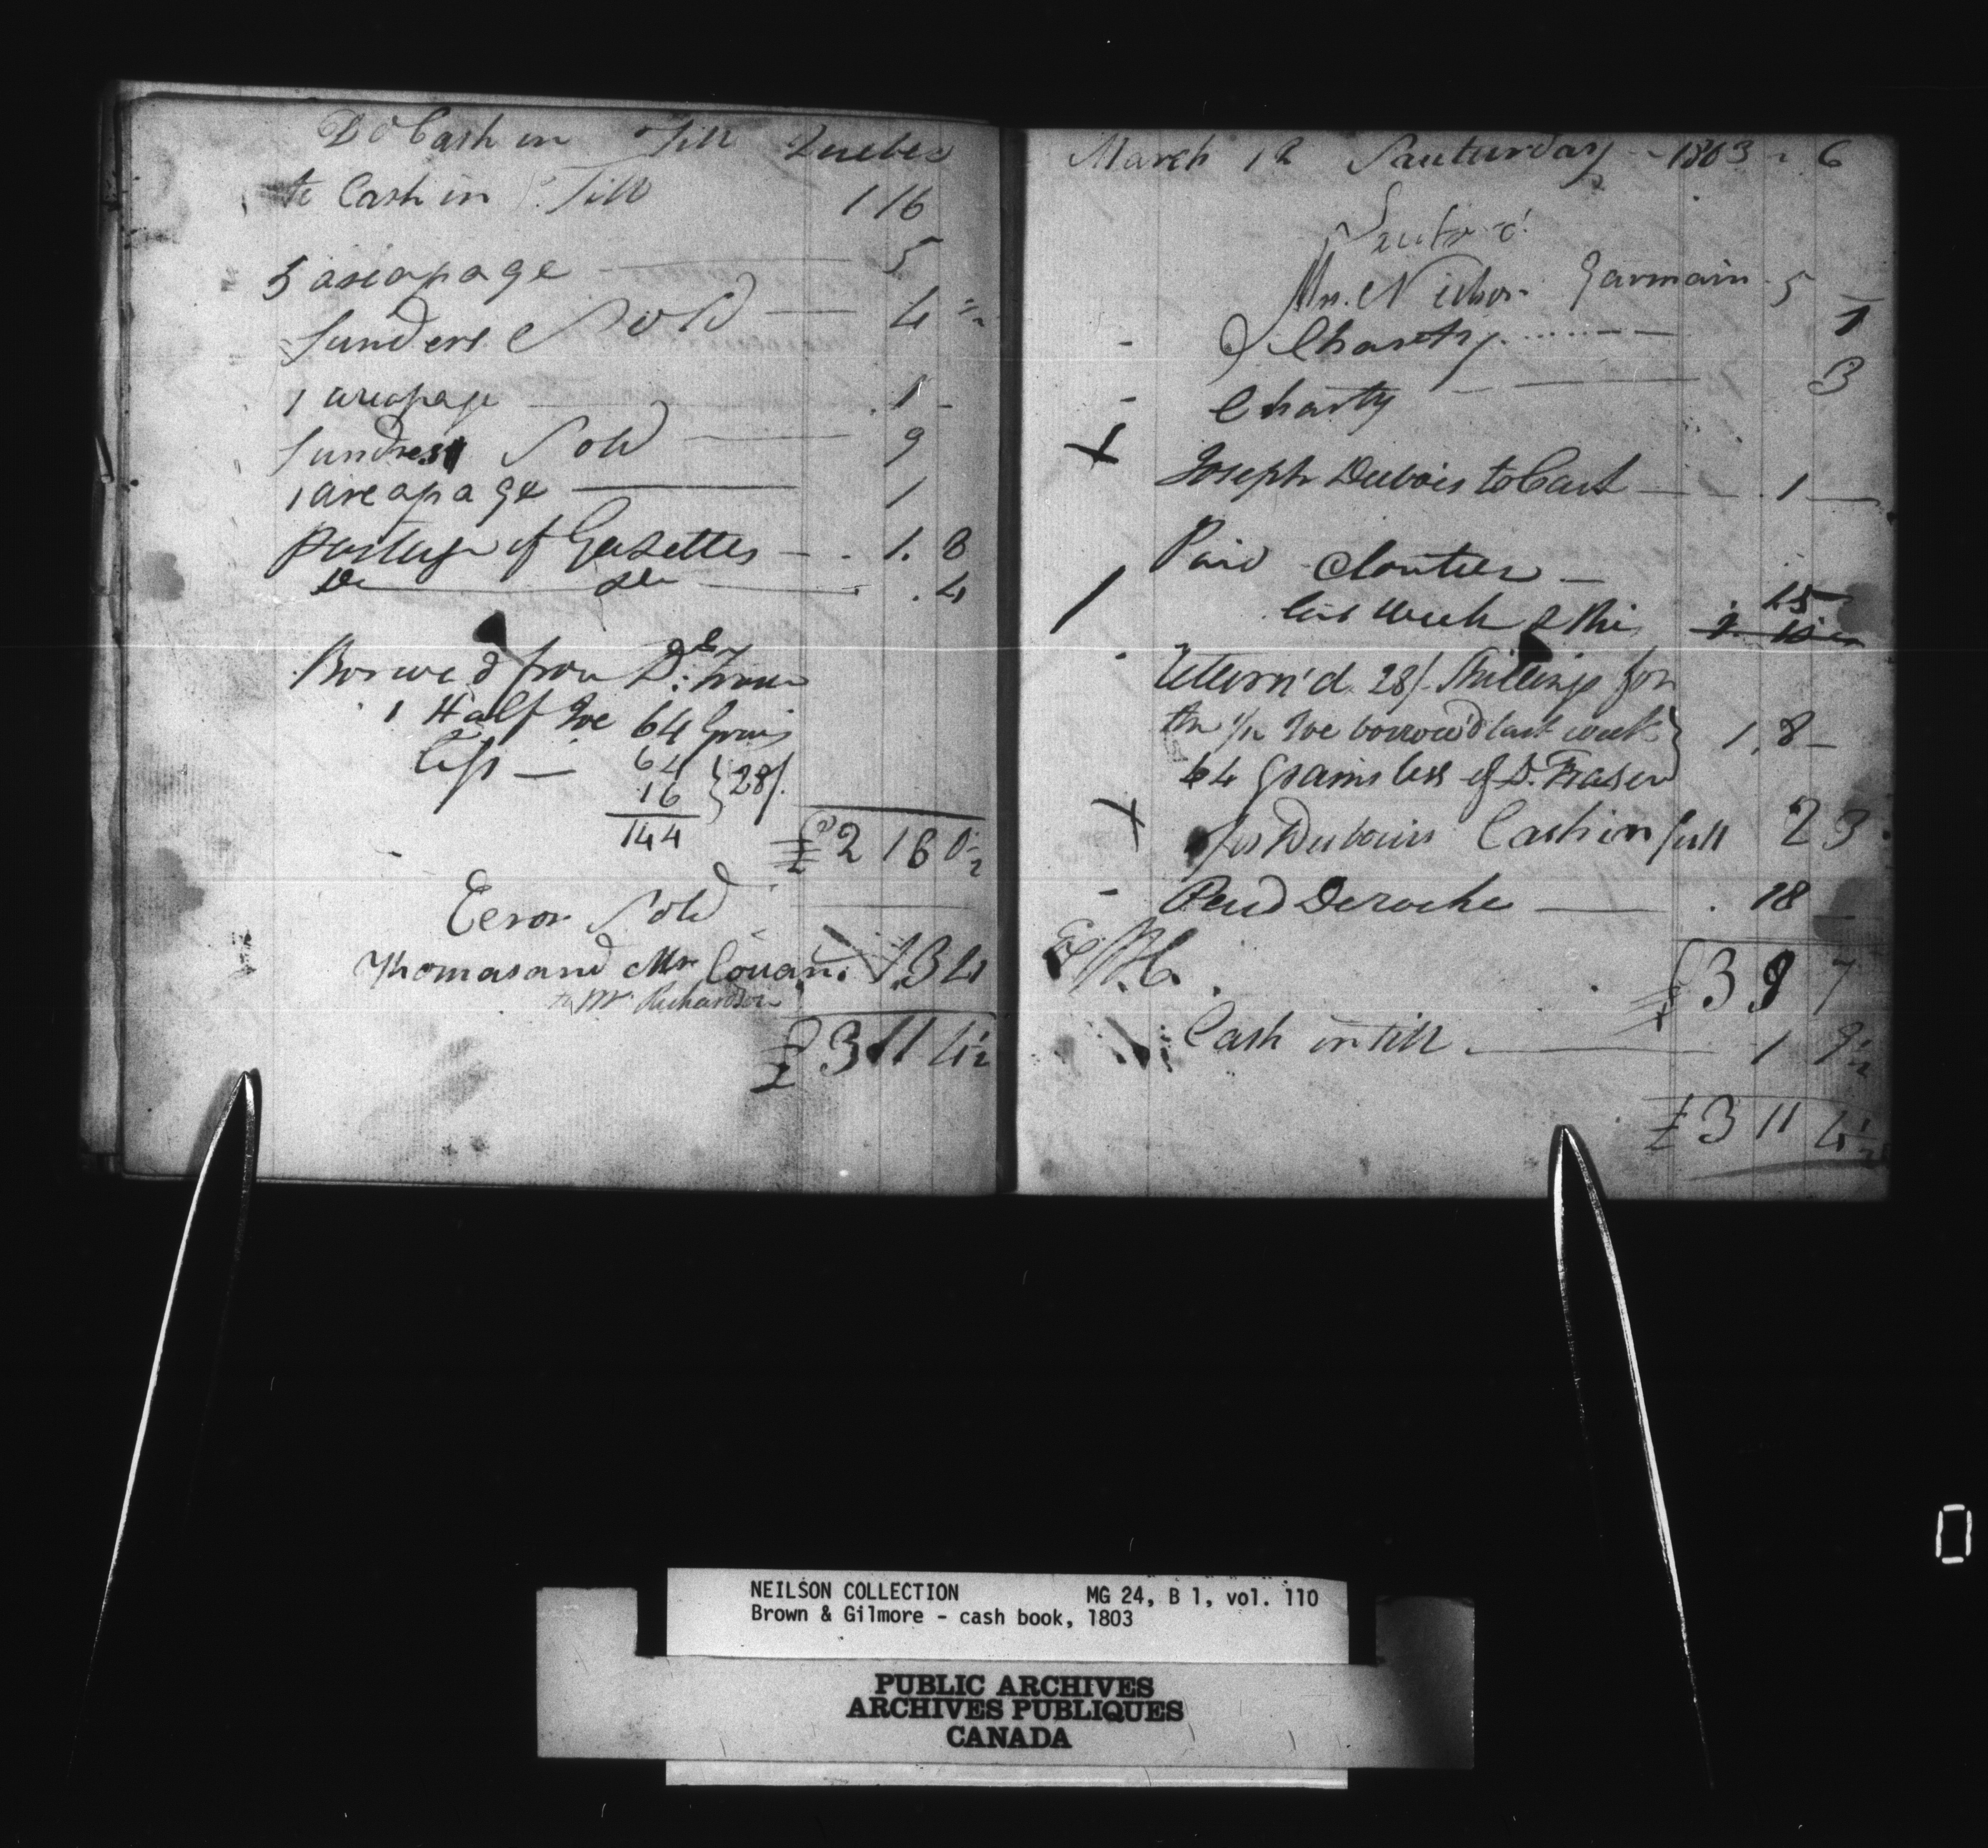 Do Cash in Till Quebec
to Cash in Till 1 16
5 areopage — 5
Sunders Sold — 4 ½
1 areopage — 1 -
Sundres Sold — 9
1 areopage — 1
Postage of Gazettes — 1. 8
Do — Do — . 4
Borrowed from D:
1 Half Joe 64 Grains
Less — 64
16 } 28/.
144
£ 2 16 0½
Eeror Sold
Thomas and Mr Couan. 13 4
to Mr Richardson
£ 3 11 4½
March 12 Sauturday - 1803 - 6
Mr. Germain 5
Charity 1
- Charity — 3
X Joseph Dubois to Cash — 1 —
Paid Cloutier —
/ last week & this 15
- Return'd 28/ Shillings for
the ½ Joe borrow'd last week } 1. 8 -
64 Grains less of D. Fraser
X Jos Dubois Cash in full 2 3
- Paid Deroche — . 18
£ 3 9 7
Cash in till — 1 9½
£ 3 11 4½
NEILSON COLLECTION MG 24, B 1, vol. 110
Brown & Gilmore - cash book, 1803
PUBLIC ARCHIVES
ARCHIVES PUBLIQUES
CANADA